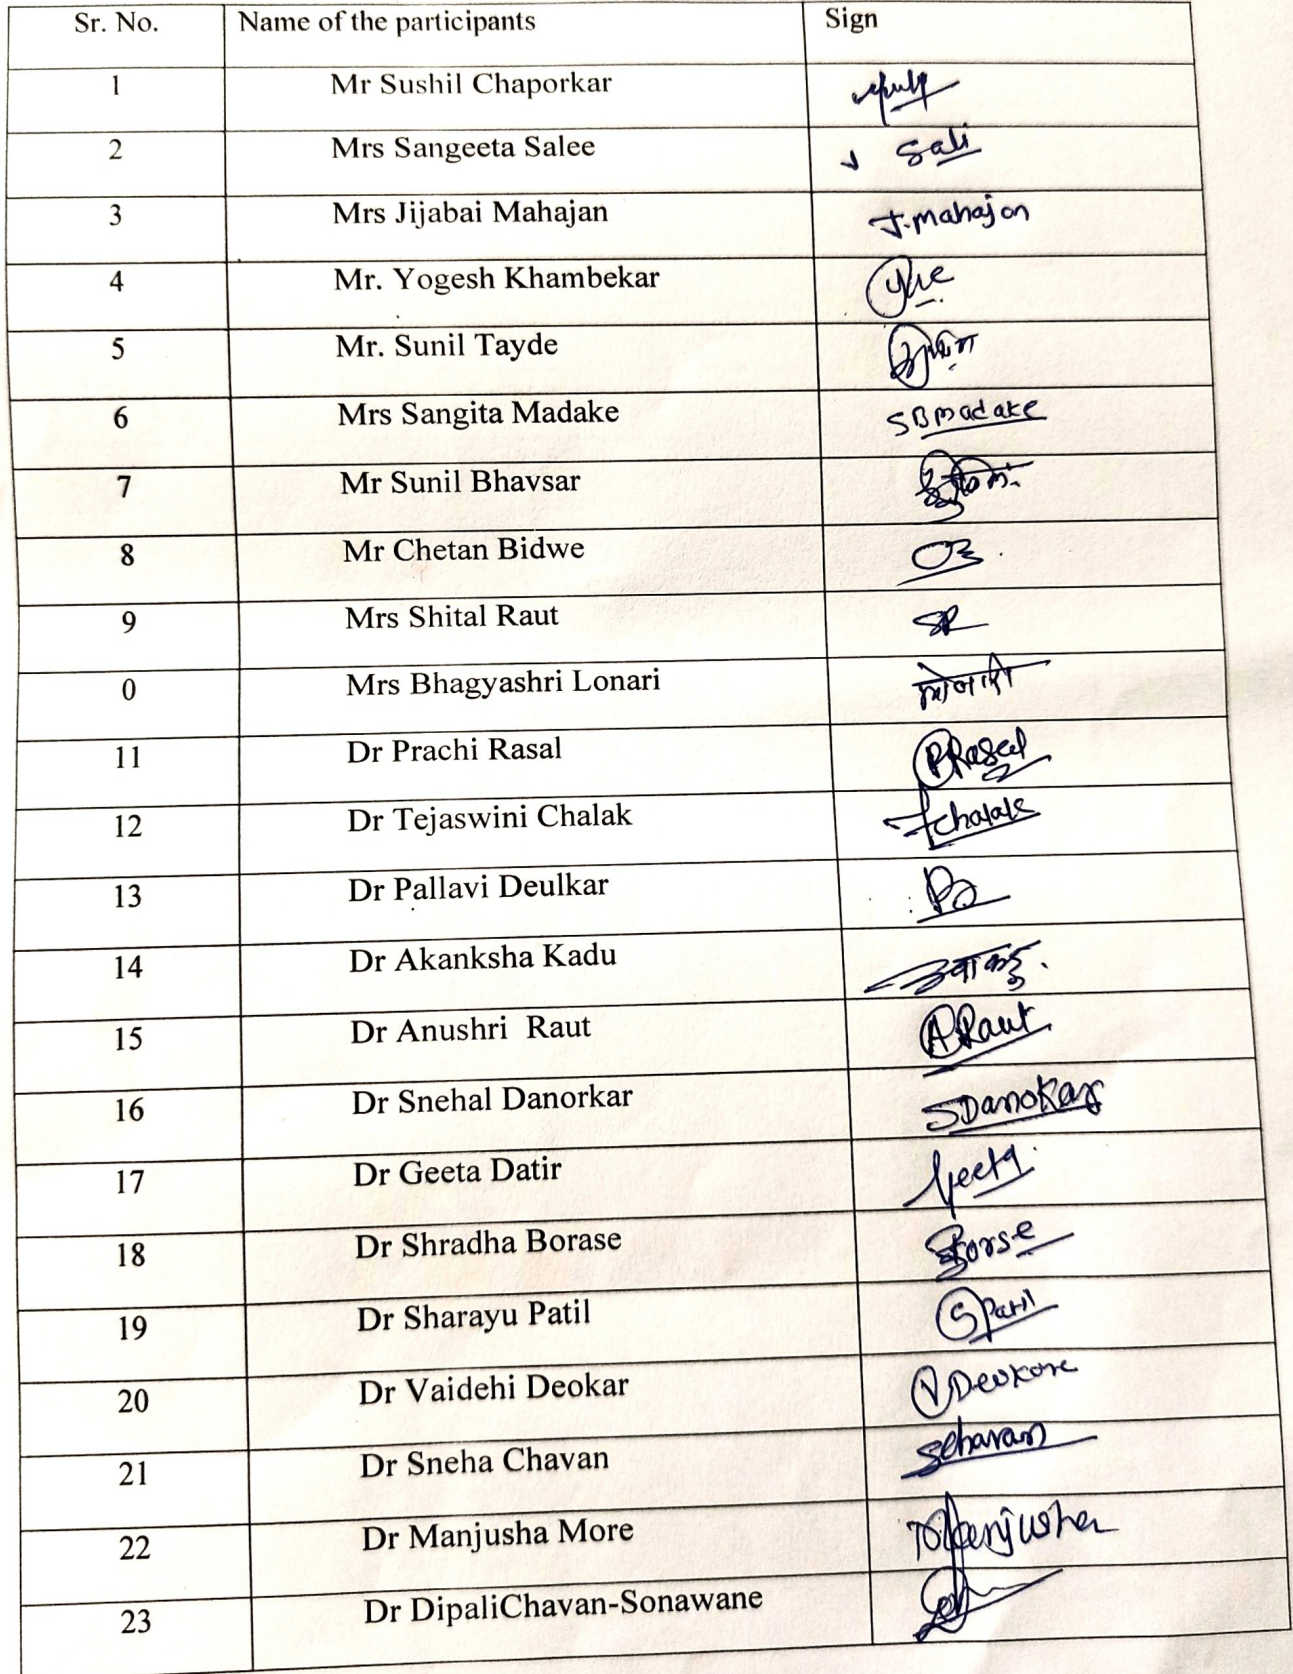 Sr. No. Name of the participants Sign
1 Mr Sushil Chaporkar
2 Mrs Sangeeta Salee Sali
3 Mrs Jijabai Mahajan J. mahajan
4 Mr. Yogesh Khambekar
5 Mr. Sunil Tayde
6 Mrs Sangita Madake SBmadake
7 Mr Sunil Bhavsar
8 Mr Chetan Bidwe
9 Mrs Shital Raut SR
0 Mrs Bhagyashri Lonari लोनारी
11 Dr Prachi Rasal PRasal
12 Dr Tejaswini Chalak Tchalak
13 Dr Pallavi Deulkar PD
14 Dr Akanksha Kadu
15 Dr Anushri Raut ARaut
16 Dr Snehal Danorkar SDanokar
17 Dr Geeta Datir Geeta
18 Dr Shradha Borase SBorse
19 Dr Sharayu Patil SPatil
20 Dr Vaidehi Deokar VDeokar
21 Dr Sneha Chavan Schavan
22 Dr Manjusha More Manjusha
23 Dr DipaliChavan-Sonawane